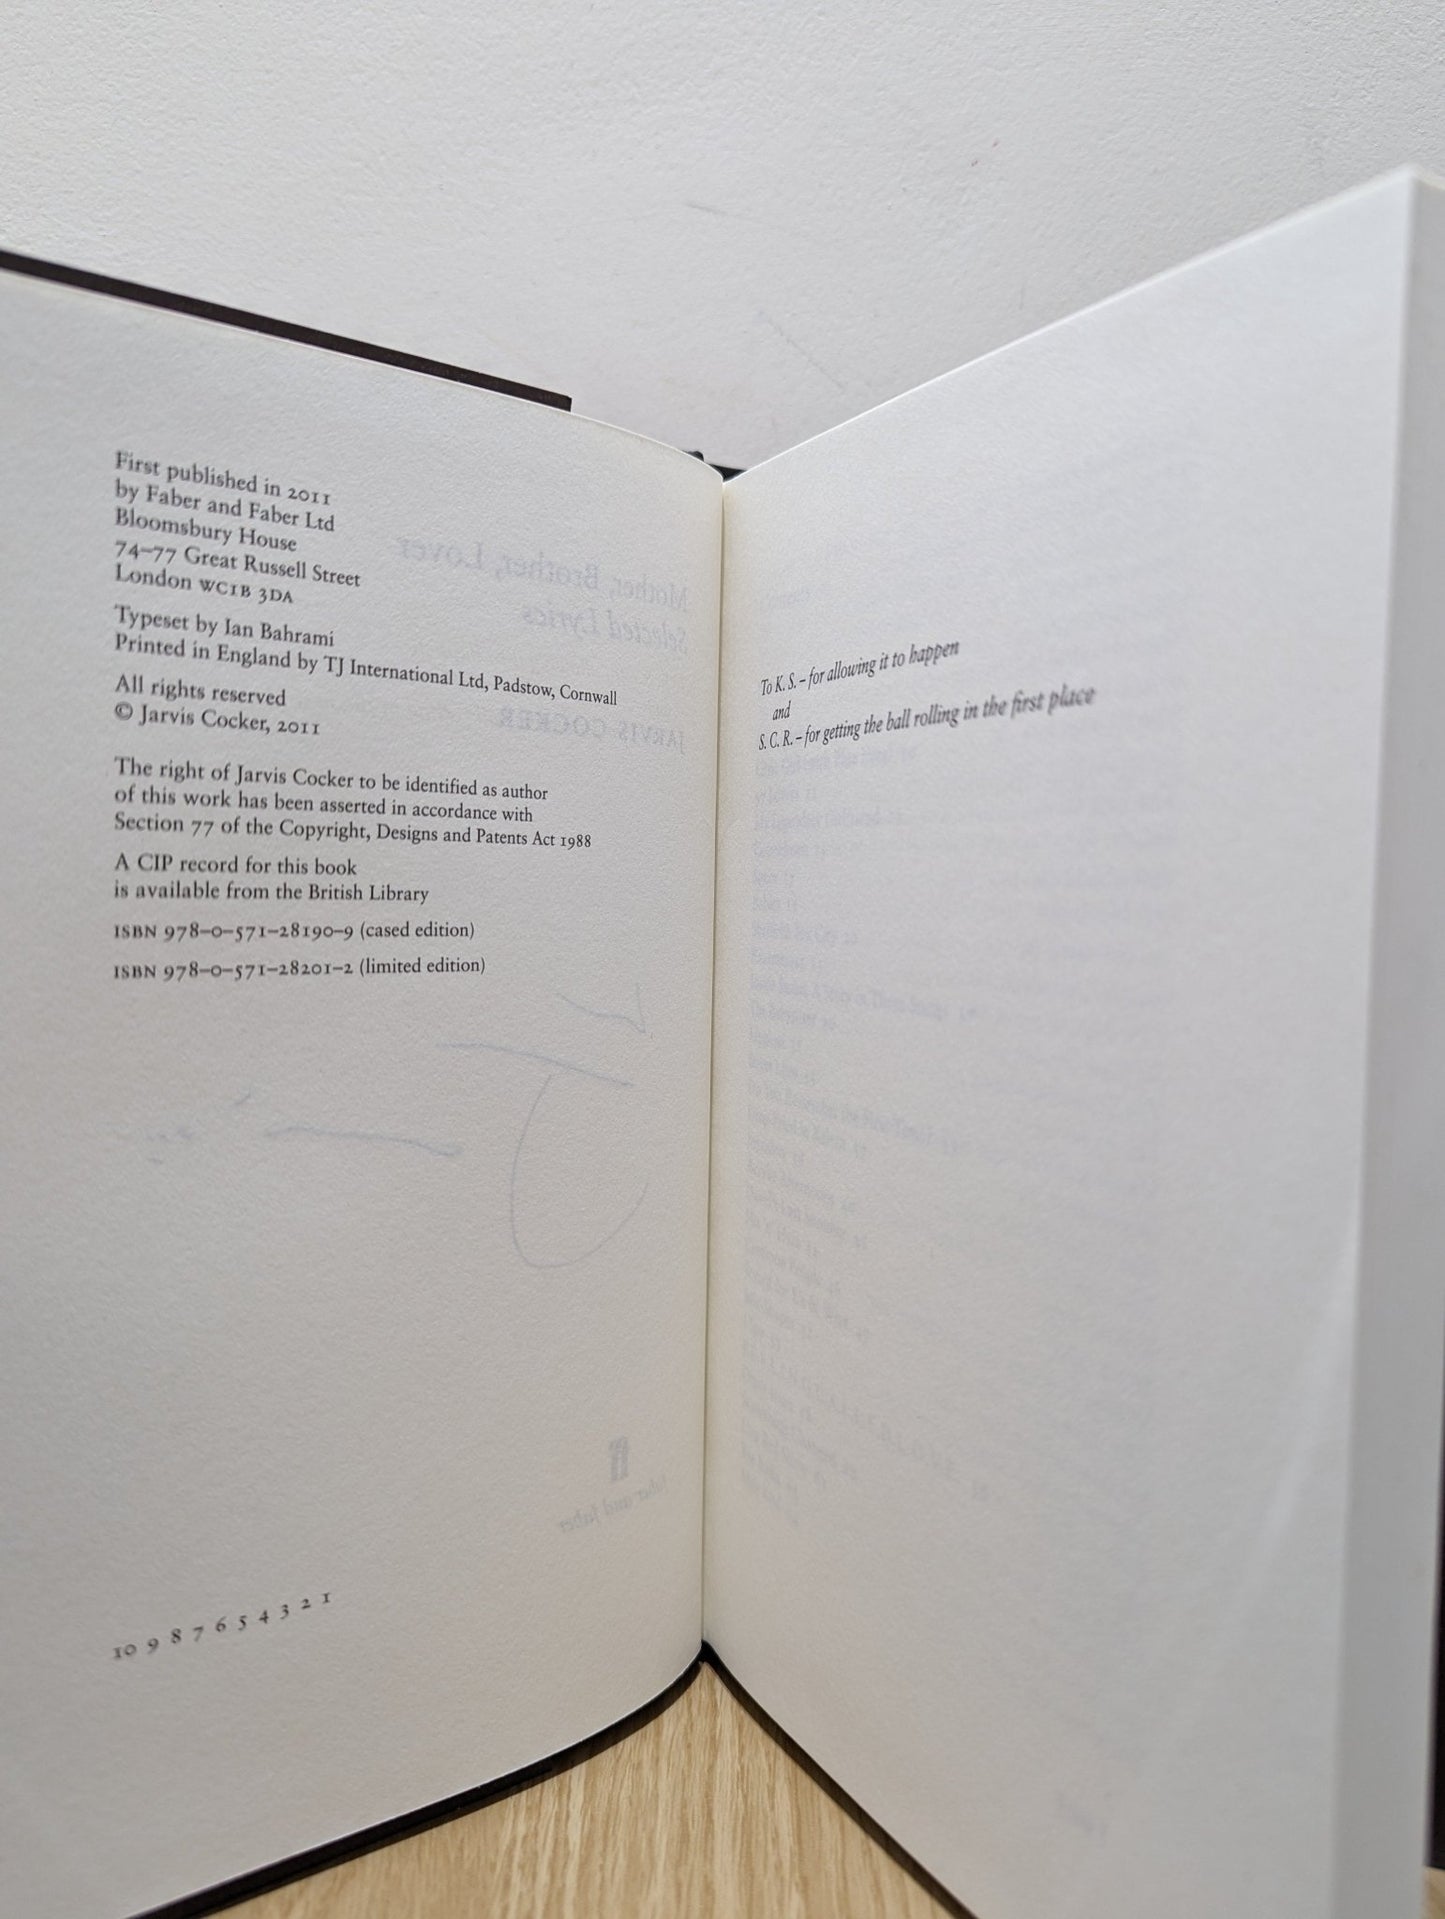 First published in 2011
by Faber and Faber Ltd
Bloomsbury House
74–77 Great Russell Street
London WC1B 3DA
Typeset by Ian Bahrami
Printed in England by TJ International Ltd, Padstow, Cornwall
All rights reserved
© Jarvis Cocker, 2011
The right of Jarvis Cocker to be identified as author
of this work has been asserted in accordance with
Section 77 of the Copyright, Designs and Patents Act 1988
A CIP record for this book
is available from the British Library
ISBN 978–0–571–28190–9 (cased edition)
ISBN 978–0–571–28201–2 (limited edition)
10 9 8 7 6 5 4 3 2 1
Mother, Brother, Lover
Selected Lyrics
JARVIS COCKER
faber and faber
To K. S. – for allowing it to happen
and
S. C. R. – for getting the ball rolling in the first place